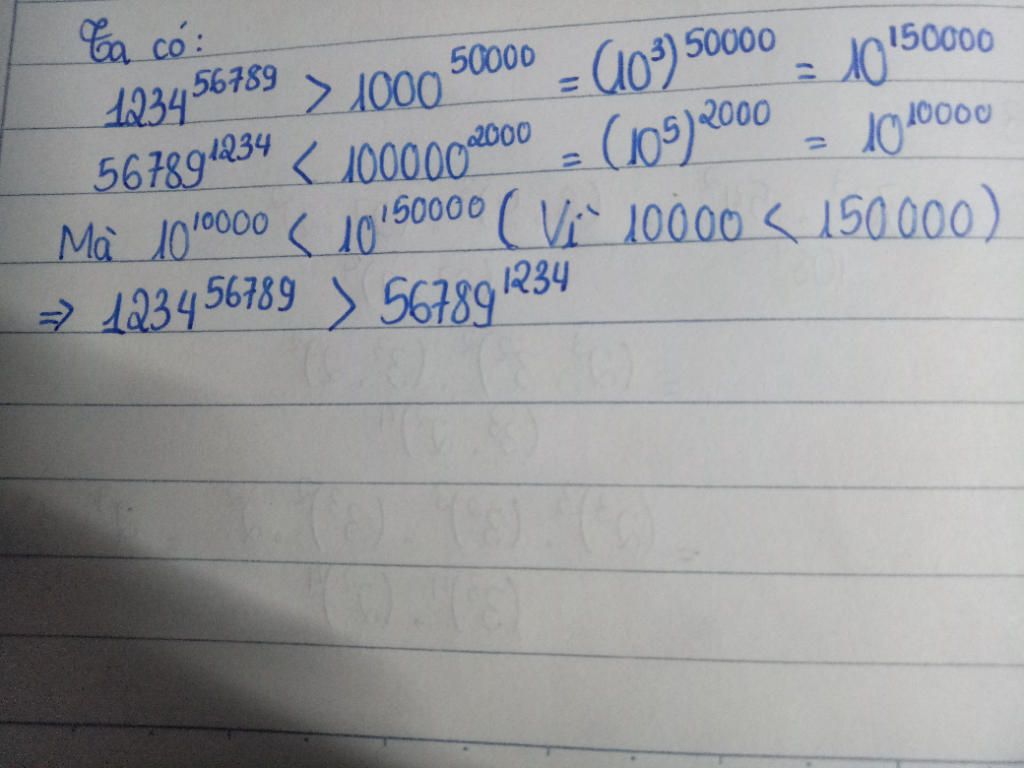 Ta có:
1234^56789 > 1000^50000 = (10^3)^50000 = 10^150000
56789^1234 < 100000^2000 = (10^5)^2000 = 10^10000
Mà 10^10000 < 10^150000 (Vì 10000 < 150000)
⇒ 1234^56789 > 56789^1234